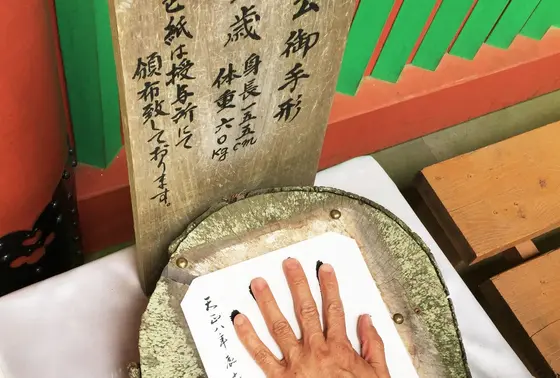 公御手形
歳 身長一五五cm
体重六〇kg
色紙は授与所にて
頒布致しております。
天正八年